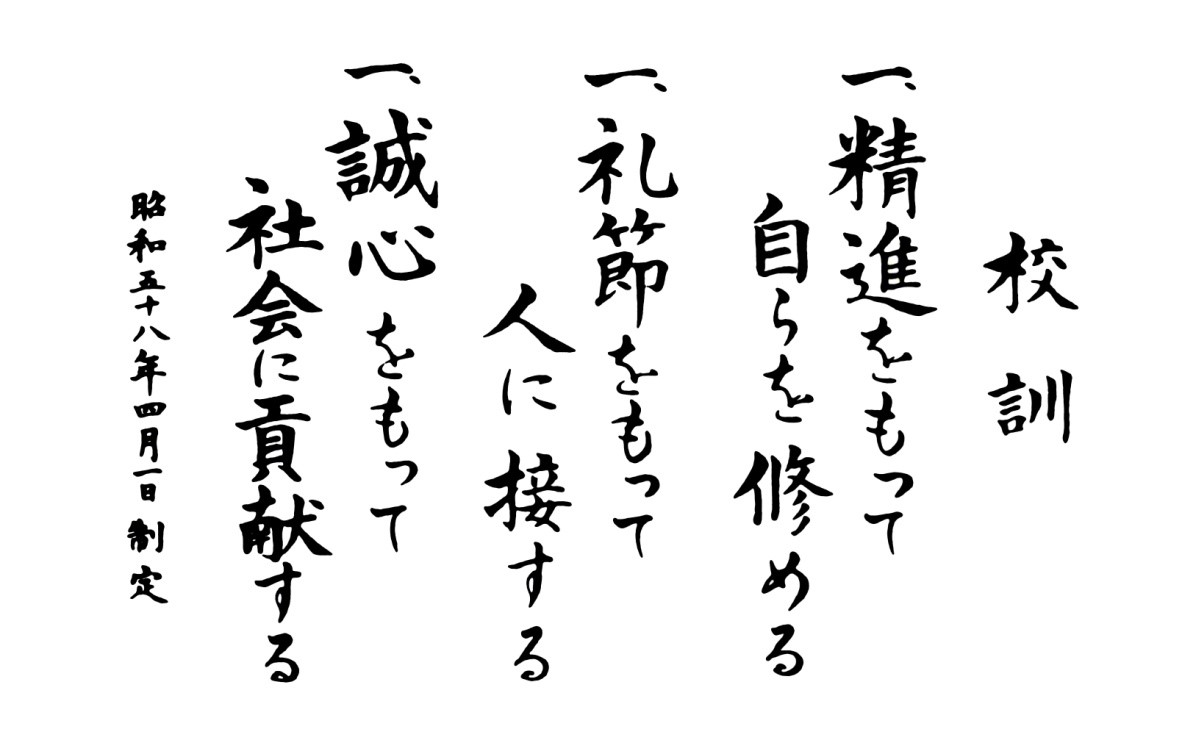 校訓
一、精進をもって
自らを修める
一、礼節をもって
人に接する
一、誠心をもって
社会に貢献する
昭和五十八年四月一日制定